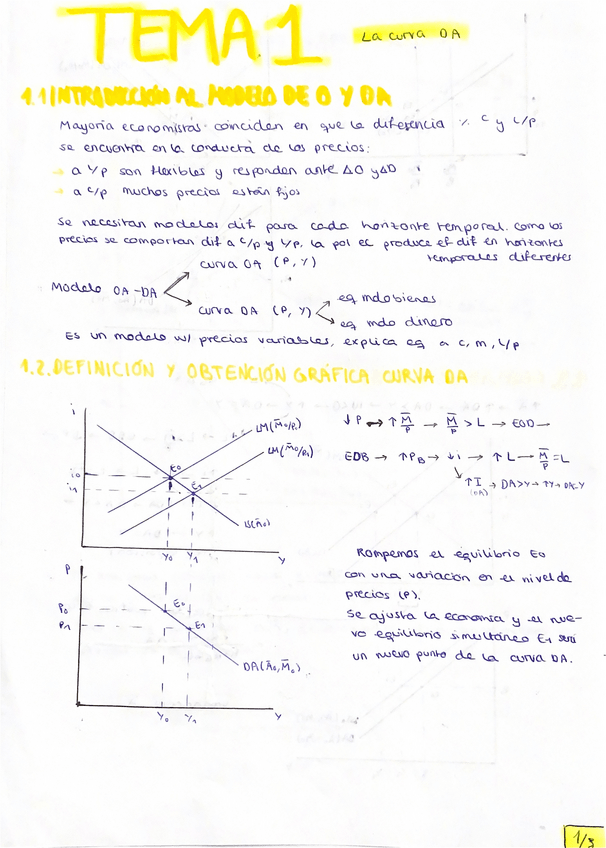 TEMA 1
La curva DA
1.1 INTRODUCCIÓN AL MODELO DE O Y DA
Mayoría economistas coinciden en que la diferencia % c y L/p
se encuentra en la conducta de los precios:
→ a L/p son flexibles y responden ante ΔO y ΔD
→ a c/p muchos precios están fijos
Se necesitan modelos dif para cada horizonte temporal. Como los
precios se comportan dif a c/p y L/p, la pol ec produce ef dif en horizontes
temporales diferentes
curva OA (P, Y)
Modelo OA-DA
curva DA (P, Y)
eq mdo bienes
eq mdo dinero
Es un modelo w/ precios variables, explica eq a c, m, L/p
1.2. DEFINICIÓN Y OBTENCIÓN GRÁFICA CURVA DA
i
LM(M̄₀/P₀)
LM(M̄₀/P₁)
i₀
i₁
E₀
E₁
IS(Ā₀)
Y₀ Y₁ Y
↓P → ↑ M̄/P → M̄/P > L → EOD →
EDB → ↑P_B → ↓i → ↑L → M̄/P = L
↑I → DA>Y → ↑Y → DA=Y
(DA)
P
P₀
P₁
E₀
E₁
DA(Ā₀, M̄₀)
Y₀ Y₁ Y
Rompemos el equilibrio E₀
con una variación en el nivel de
precios (P).
Se ajusta la economía y el nue-
vo equilibrio simultáneo E₁ será
un nuevo punto de la curva DA.
1/3